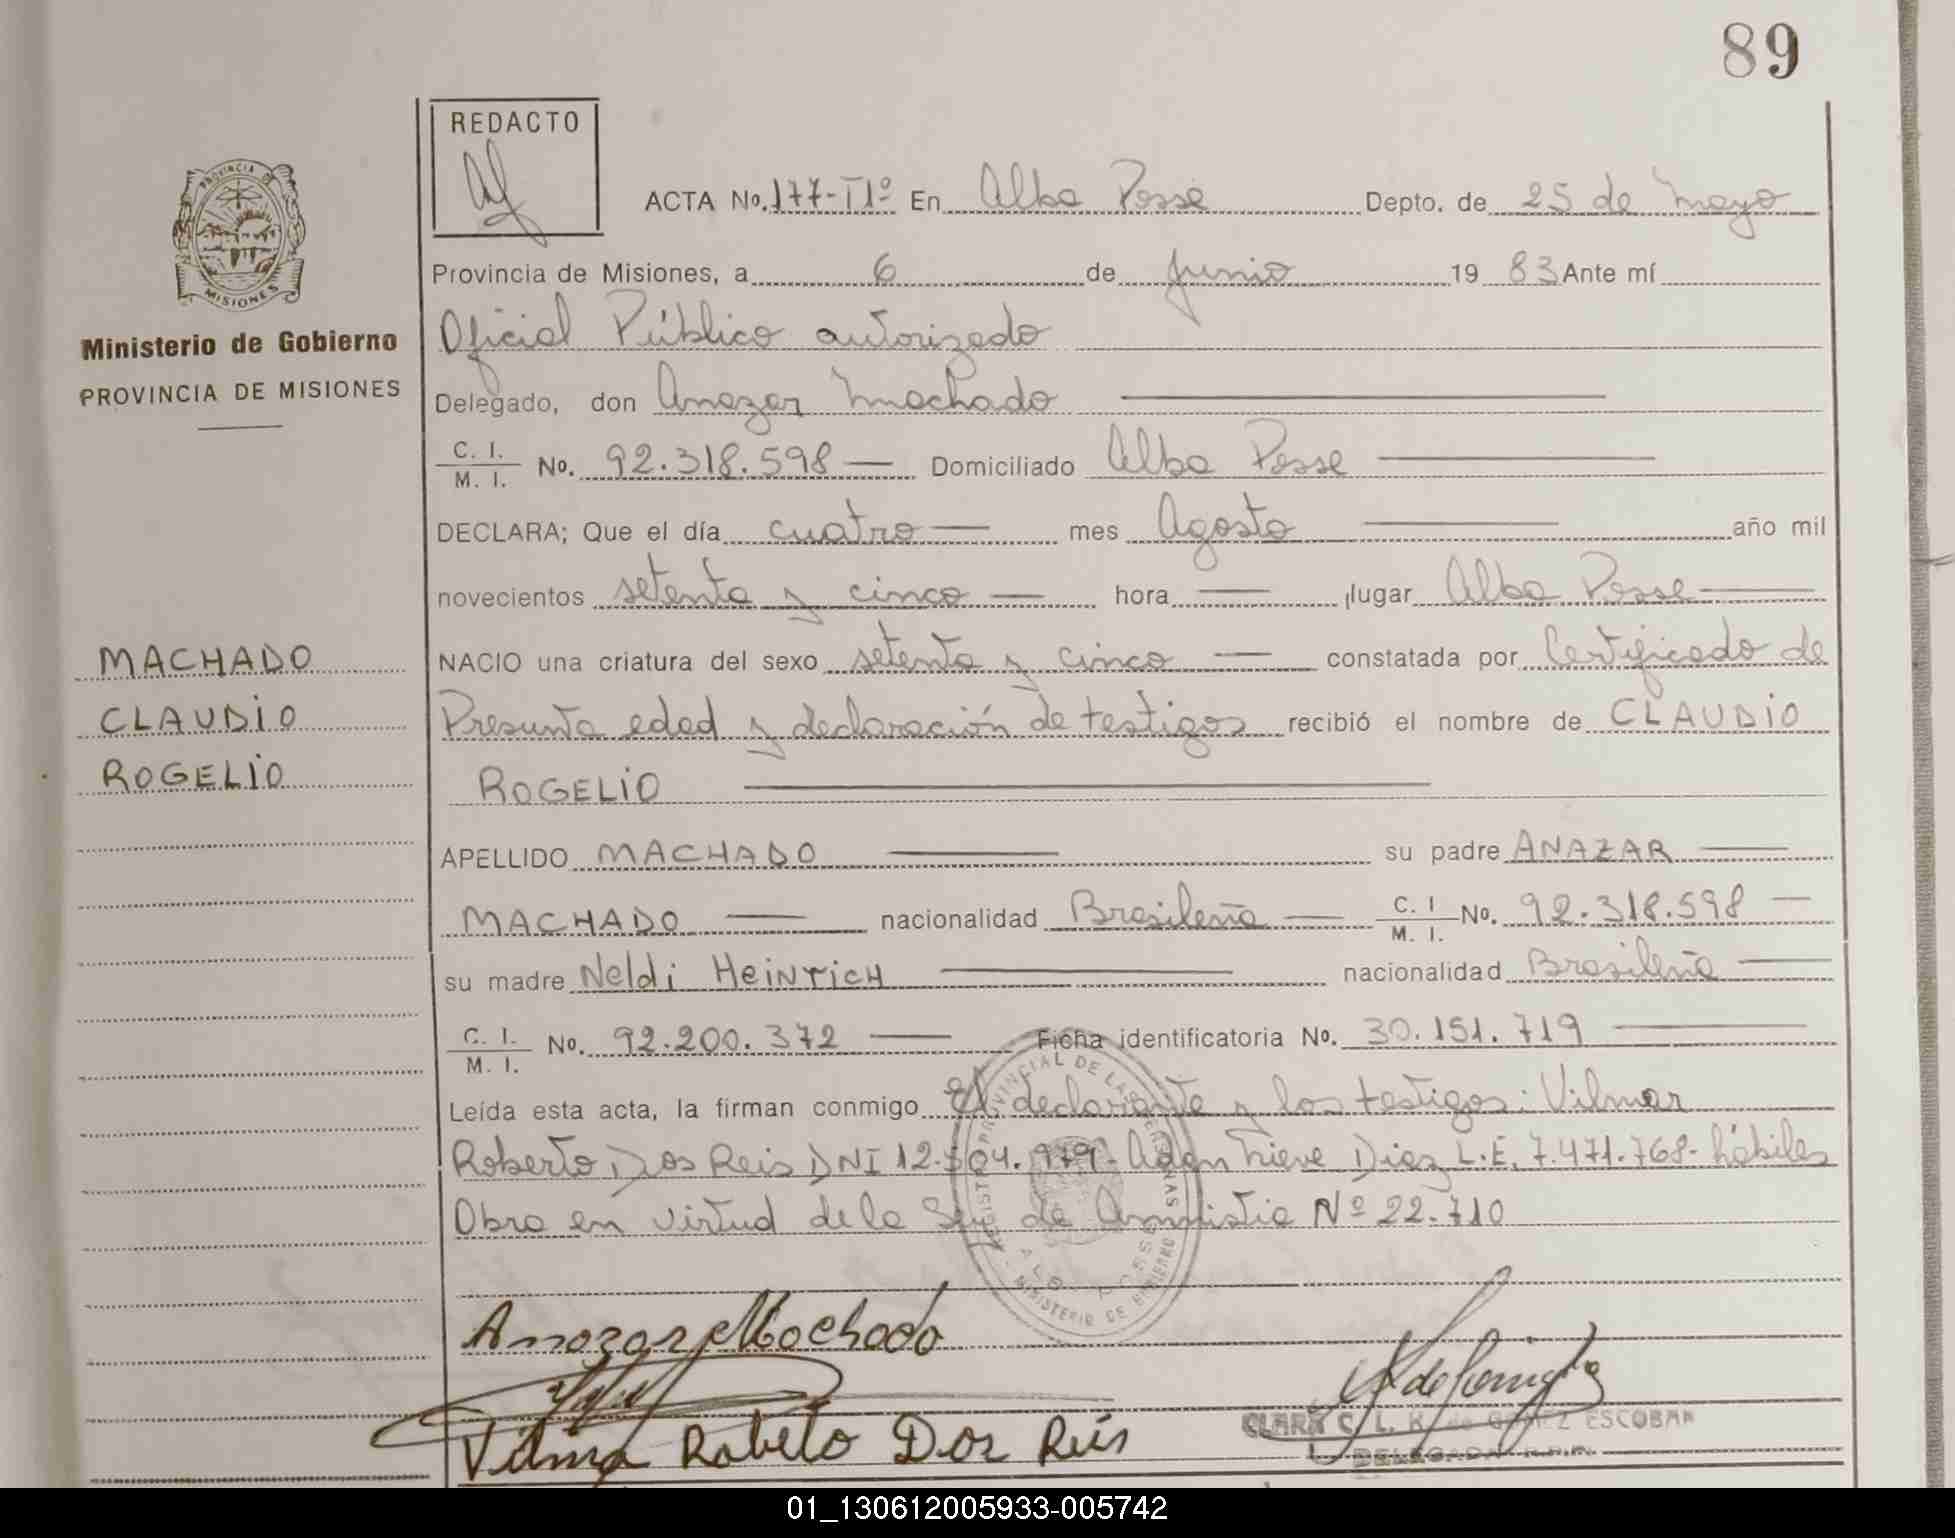 89
REDACTO
ACTA No. 177-T1º En Alba Posse Depto. de 25 de Mayo
Provincia de Misiones, a 6 de Junio 1983 Ante mí
Oficial Público autorizado
Delegado, don Anazar Machado
C. I. / M. I. No. 92.318.598 — Domiciliado Alba Posse
DECLARA; Que el día cuatro — mes Agosto año mil
novecientos setenta y cinco — hora — lugar Alba Posse
NACIO una criatura del sexo setenta y cinco — constatada por Certificado de
Presunta edad y declaración de testigos recibió el nombre de CLAUDIO
ROGELIO
APELLIDO MACHADO — su padre ANAZAR
MACHADO — nacionalidad Brasileña — C. I / M. I. No. 92.318.598 —
su madre Neldi HeinricH — nacionalidad Brasileña —
C. I. / M. I. No. 92.200.372 — Ficha identificatoria No. 30.151.719
Leída esta acta, la firman conmigo El declarante y los testigos: Vilmar
Roberto Dos Reis DNI 12. 04.979- Adan Diez L.E. 7.471.768- hábiles
Obra en virtud de la de Amnistia Nº 22.710
Anazar Machado
Vilmar Robeto Dos Reis
CLARA C. L. K. de GOMEZ ESCOBAR
DELEGADA R.P.P.
PROVINCIA DE
MISIONES
Ministerio de Gobierno
PROVINCIA DE MISIONES
MACHADO
CLAUDIO
ROGELIO
REGISTRO PROVINCIAL DE LAS PERSONAS
ALBA POSSE
MINISTERIO DE GOBIERNO
01_130612005933-005742